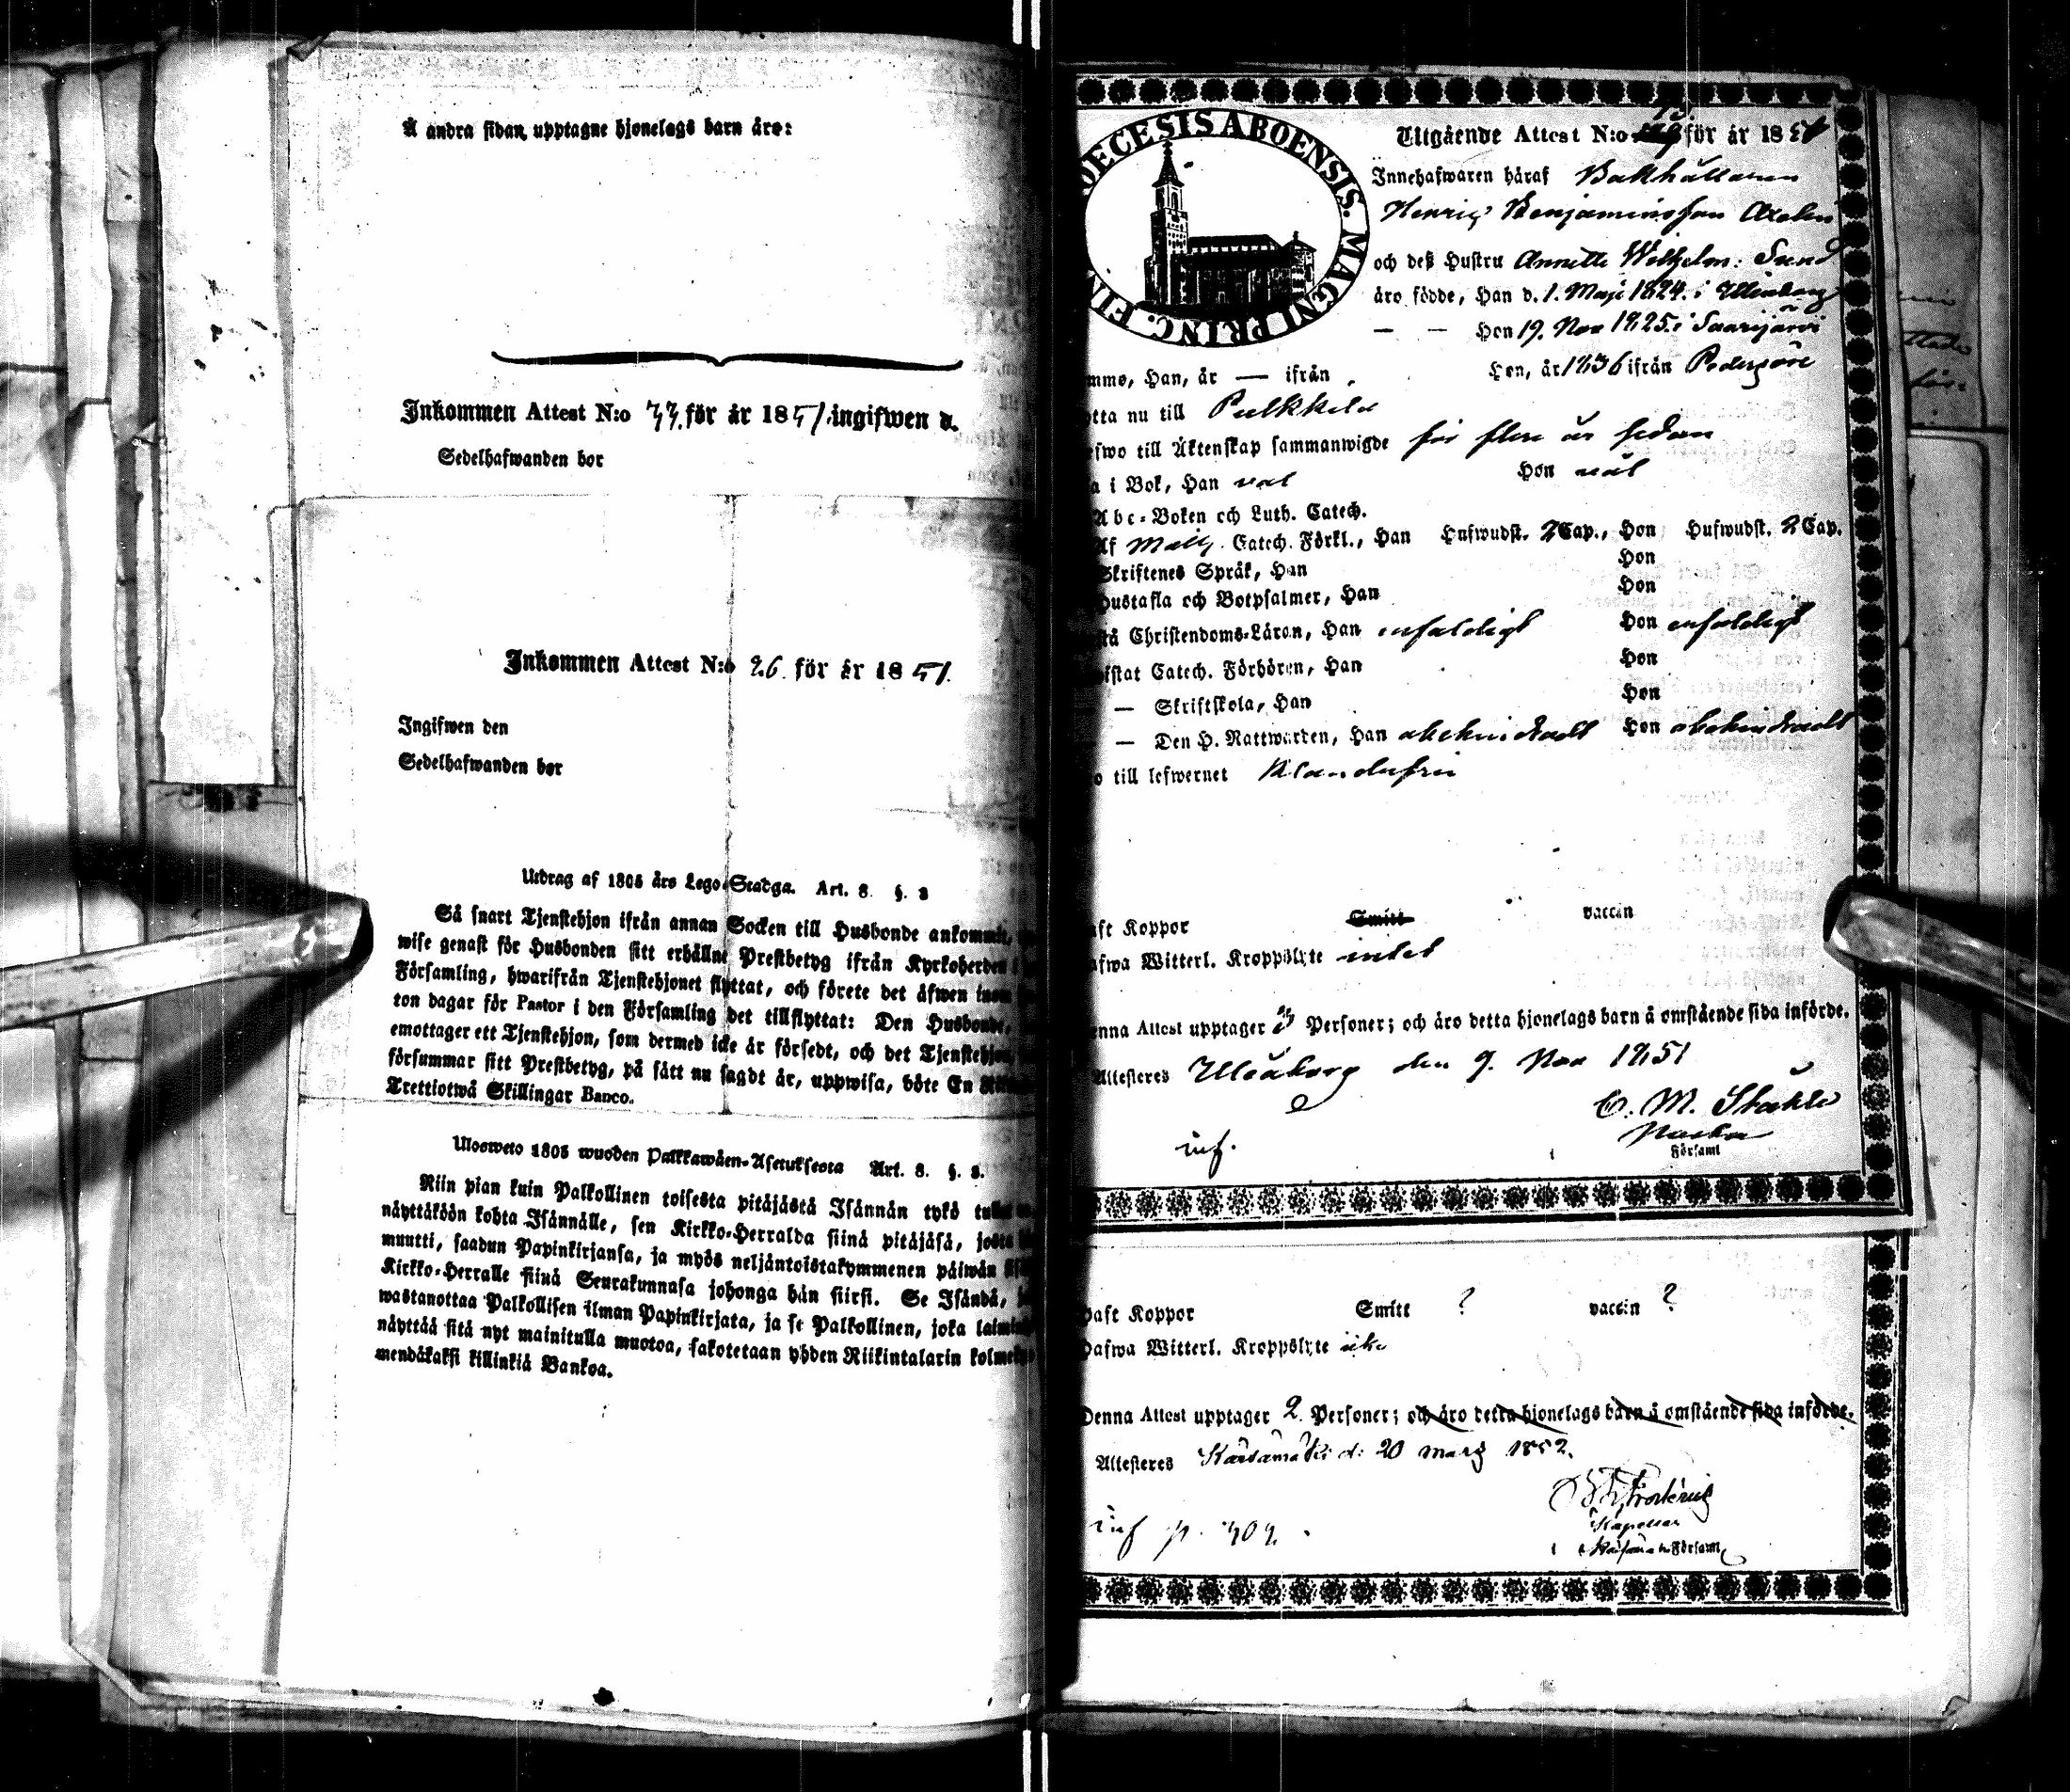 Å andra sidan upptagne hjonelags barn äro:
Inkommen Attest N:o 33 för år 1851 ingifwen d.
Sedelhafwanden bor
Inkommen Attest N:o 26 för år 1851.
Ingifwen den
Sedelhafwanden bor
Utdrag af 1805 års Lego-Stadga. Art. 8 §. 8
Så snart Tjenstehjon ifrån annan Socken till Husbonde ankommit,
wise genast för Husbonden sitt erhållne Prestbetyg ifrån Kyrkoherden i
Församling, hwarifrån Tjenstehjonet flyttat, och förete det äfwen inom
ton dagar för Pastor i den Församling det tillflyttat: Den Husbonde,
emottager ett Tjenstehjon, som dermed icke är försedt, och det Tjenstehjon,
försummar sitt Prestbetyg, på sätt nu sagdt är, uppwisa, böte En
Trettiotwå Skillingar Banco.
Ulosweto 1805 wuoden Palkkawäen-Asetuksesta Art. 8. §. 8.
Niin pian kuin Palkollinen toisesta pitäjästä Isännän tykö
näyttäköön kohta Isännälle, sen Kirkko-Herralda siinä pitäjäsä, josta
muutti, saadun Papinkirjansa, ja myös neljäntoistakymmenen päiwän
Kirkko-Herralle siinä Seurakunnasa johonga hän siirsi. Se Isändä,
wastanottaa Palkollisen ilman Papinkirjata, ja se Palkollinen, joka
näyttää sitä nyt mainitulla muotoa, sakotetaan yhden Riikintalarin
mendäkaksi killinkiä Bankoa.
DECESIS ABOENSIS. MAGNI PRINC. FIN
Utgående Attest N:o 13. för år 1851
Innehafwaren häraf Bokhållaren
Henric Benjaminsson Axelin
och deß Hustru Annette Wilhelm: Sund
äro födde, Han d. 1. Maji 1824. i Uleåborg
— — Hon 19. Nov 1825. i Saarijärvi
mmo, Han, år — ifrån Hon, år 1836 ifrån Pedersöre
otta nu till Pulkkila
efwo till Äktenskap sammanwigde för flere år sedan
a i Bok, Han väl Hon väl
Abc-Boken och Luth. Catech.
Af Catech. Förkl., Han Hufwudst. 2 Cap., Hon Hufwudst. 2 Cap.
Skriftenes Språk, Han Hon
Hustafla och Botpsalmer, Han Hon
stå Christendoms-Läran, Han enfaldigt Hon enfaldigt
wistat Catech. Förhören, Han Hon
— Skriftskola, Han Hon
— Den H. Nattwarden, Han obehindradt Hon obehindradt
o till lefwernet klanderfrie
aft Koppor Smitt vaccin
afwa Witterl. Kroppslyte intet
enna Attest upptager 3 Personer; och äro detta hjonelags barn å omstående sida införde.
Attesteres Uleåborg den 9. Nov 1851
C. M. Ståhle
Pastor
Församl
inf.
Haft Koppor Smitt ? vaccin ?
Hafwa Witterl. Kroppslyte icke
Denna Attest upptager 2 Personer; och äro detta hjonelags barn å omstående sida införde.
Attesteres Kärsämäki d: 20 Mars 1852.
Kapellan
i Kärsämäki Församl
inf p. 404.